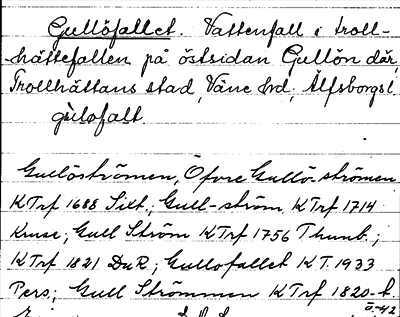 Gullöfallet. Vattenfall i Troll-
hättefallen på östsidan Gullön där,
Trollhättans stad, Väne hd, Älfsborgs l.
gùlofalt.
Gullöströmmen, Öfore Gullö-strömen
KTrf 1688 Sixt.; Gull-ström KTrf 1714
Kruse; Gull Ström KTrf 1756 Thunb.;
KTrf 1821 DuR; Gullofallet KT. 1933
Pers; Gull Strömmen KTrf 1820-t.
Ö-42